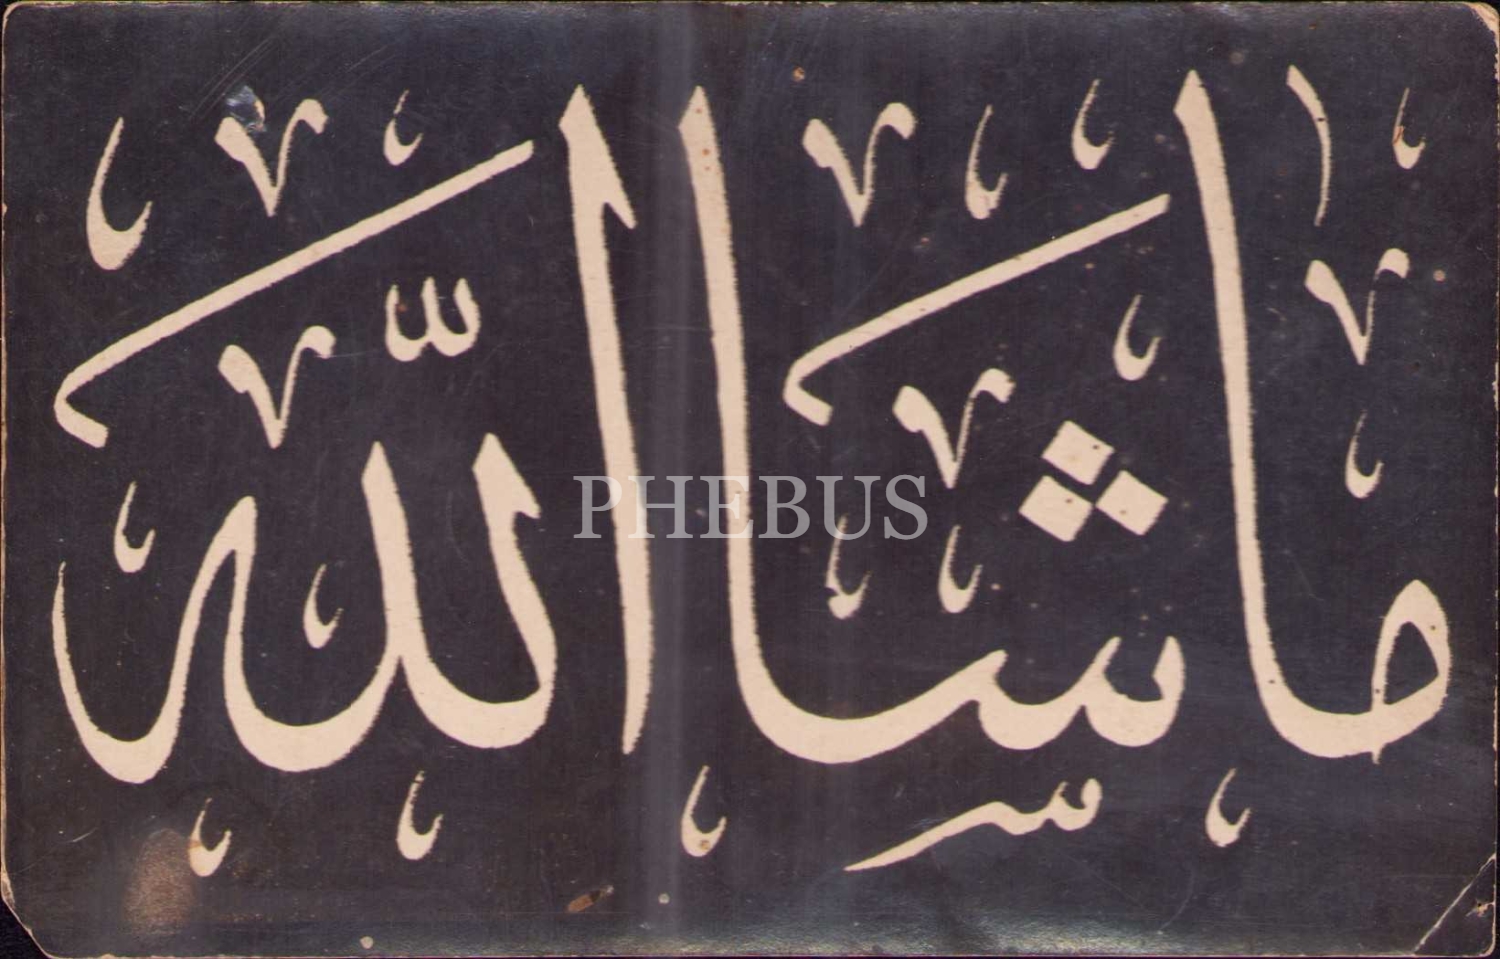 ماشاالله
PHEBUS